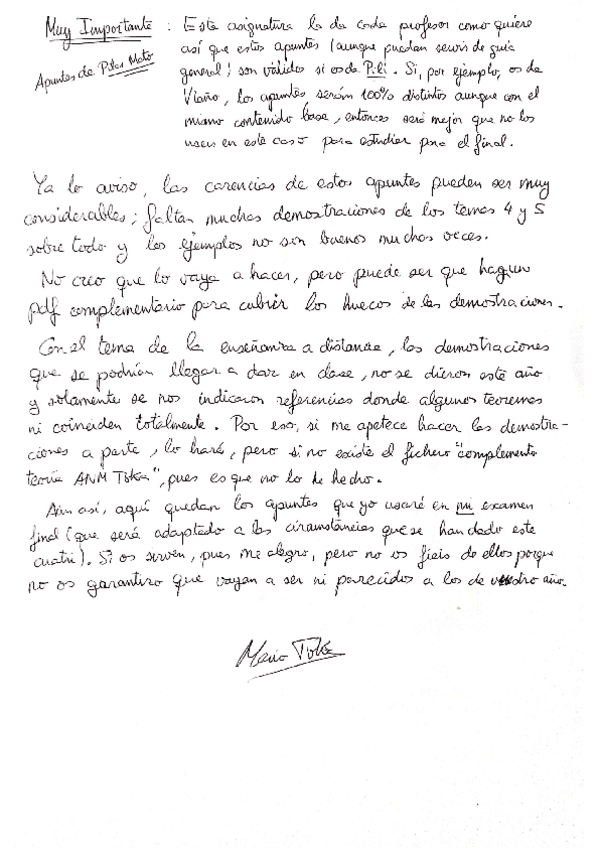 Muy Importante : Esta asignatura la da cada profesor como quiere
así que estos apuntes (aunque puedan serviros de guía
Apuntes de Pilar Mato
general) son válidos si os da Pili. Si, por ejemplo, os da
Viaño, los apuntes serán 100% distintos aunque con el
mismo contenido base, entonces será mejor que no los
useis en este caso para estudiar para el final.
Ya lo aviso, las carencias de estos apuntes pueden ser muy
considerables; faltan muchas demostraciones de los temas 4 y 5
sobre todo y los ejemplos no son buenos muchas veces.
No creo que lo vaya a hacer, pero puede ser que haga un
pdf complementario para cubrir los huecos de las demostraciones.
Con el tema de la enseñanza a distancia, las demostraciones
que se podrían llegar a dar en clase, no se dieron este año
y solamente se nos indicaron referencias donde algunos teoremas
ni coinciden totalmente. Por eso, si me apetece hacer las demostra-
ciones a parte, lo haré, pero si no existe el fichero "complemento
teoría ANM Toka", pues es que no lo he hecho.
Aún así, aquí quedan los apuntes que yo usaré en mi examen
final (que será adaptado a las circunstancias que se han dado este
cuatri). Si os sirven, pues me alegro, pero no os fieis de ellos porque
no os garantizo que vayan a ser ni parecidos a los de vuestro año.
Mario Toka